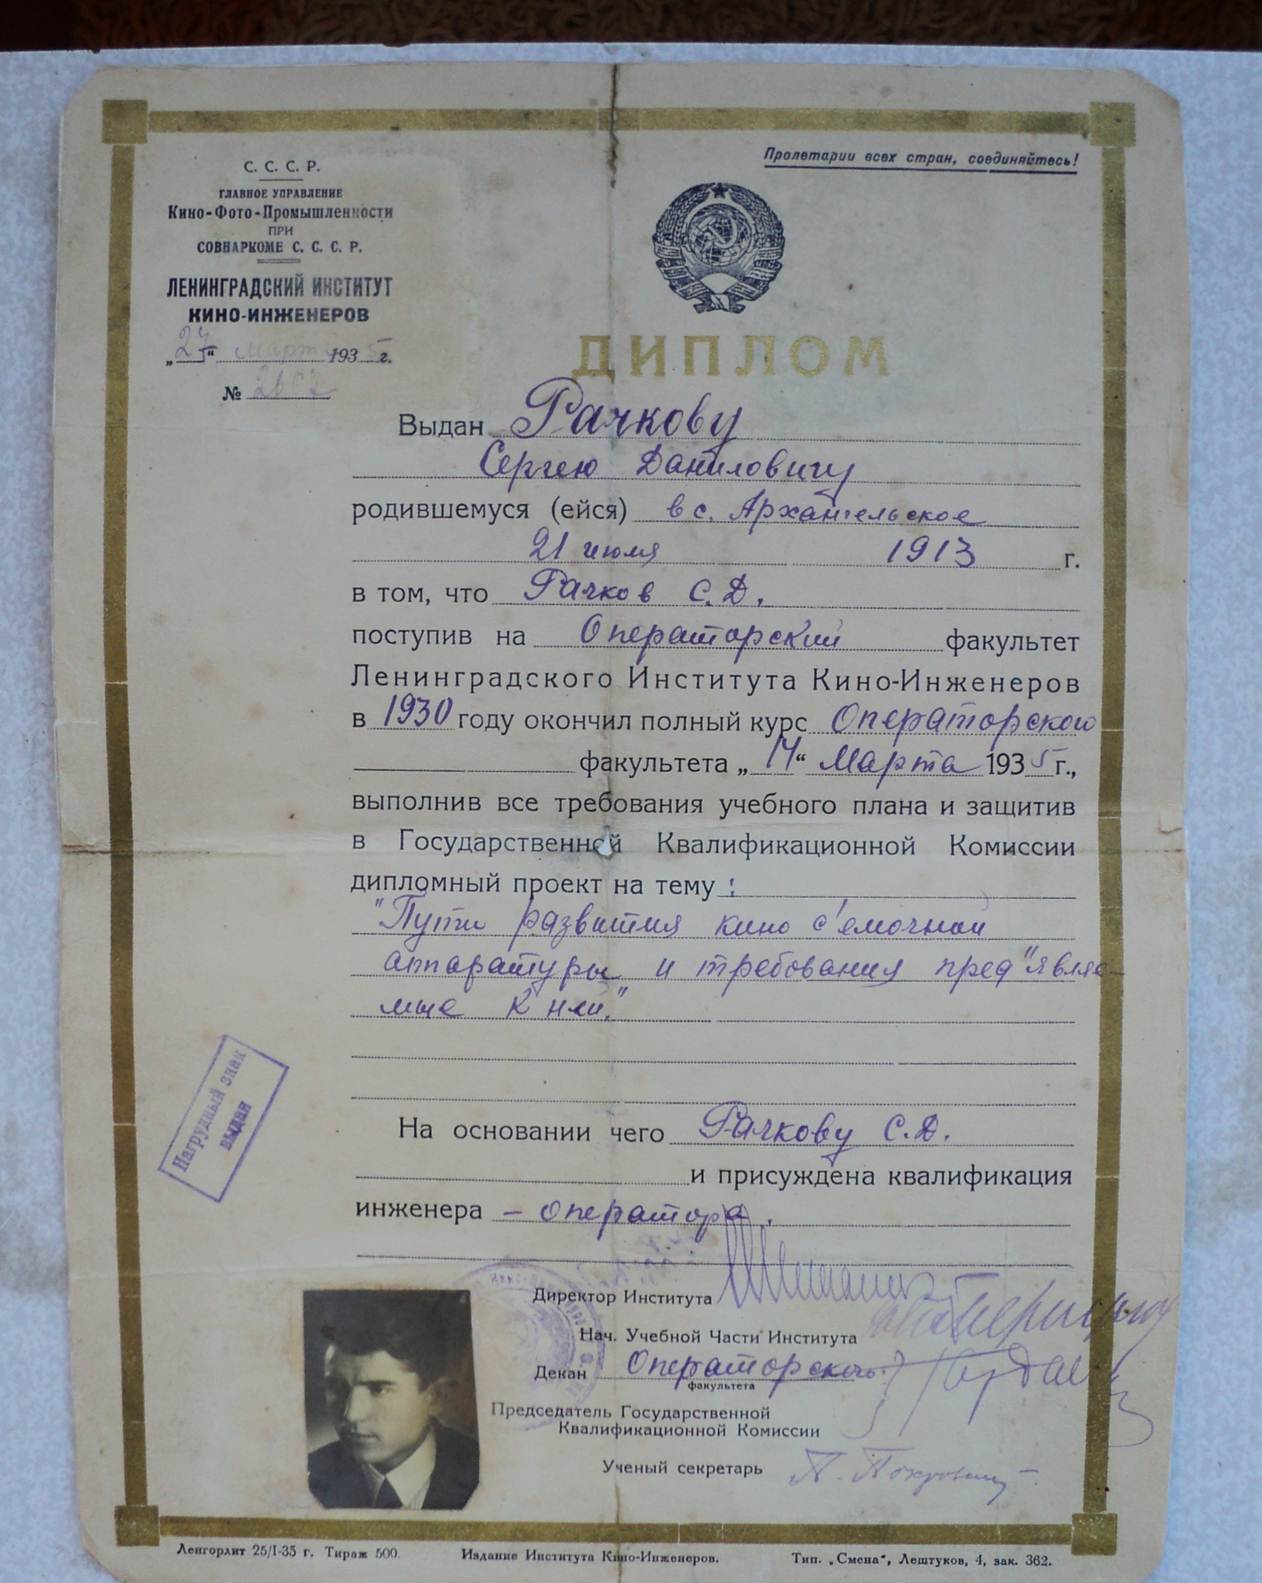 С. С. С. Р.
ГЛАВНОЕ УПРАВЛЕНИЕ
Кино-Фото-Промышленности
ПРИ
СОВНАРКОМЕ С. С. С. Р.
ЛЕНИНГРАДСКИЙ ИНСТИТУТ
КИНО-ИНЖЕНЕРОВ
„27“ марта 1935 г.
№
Пролетарии всех стран, соединяйтесь!
ДИПЛОМ
Выдан Рачкову
Сергею Даниловичу
родившемуся (ейся) в с. Архангельское
21 июля 1913 г.
в том, что Рачков С.Д.
поступив на Операторский факультет
Ленинградского Института Кино-Инженеров
в 1930 году окончил полный курс Операторского
факультета „14“ Марта 1935 г.,
выполнив все требования учебного плана и защитив
в Государственной Квалификационной Комиссии
дипломный проект на тему:
"Пути развития кино с'емочной
аппаратуры и требования пред"являе-
мые к ней."
На основании чего Рачкову С.Д.
и присуждена квалификация
инженера - оператора.
Нагрудный знак
выдан
Директор Института
Нач. Учебной Части Института
Декан Операторского
факультета
Председатель Государственной
Квалификационной Комиссии
Ученый секретарь
Ленгорлит 25/I-35 г. Тираж 500. Издание Института Кино-Инженеров. Тип. „Смена“, Лештуков, 4, зак. 362.